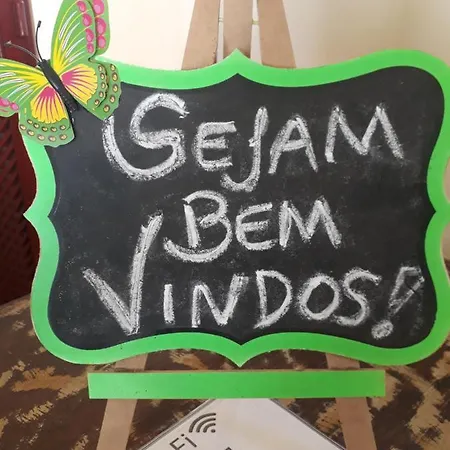 SEJAM
BEM
VINDOS!
Fi